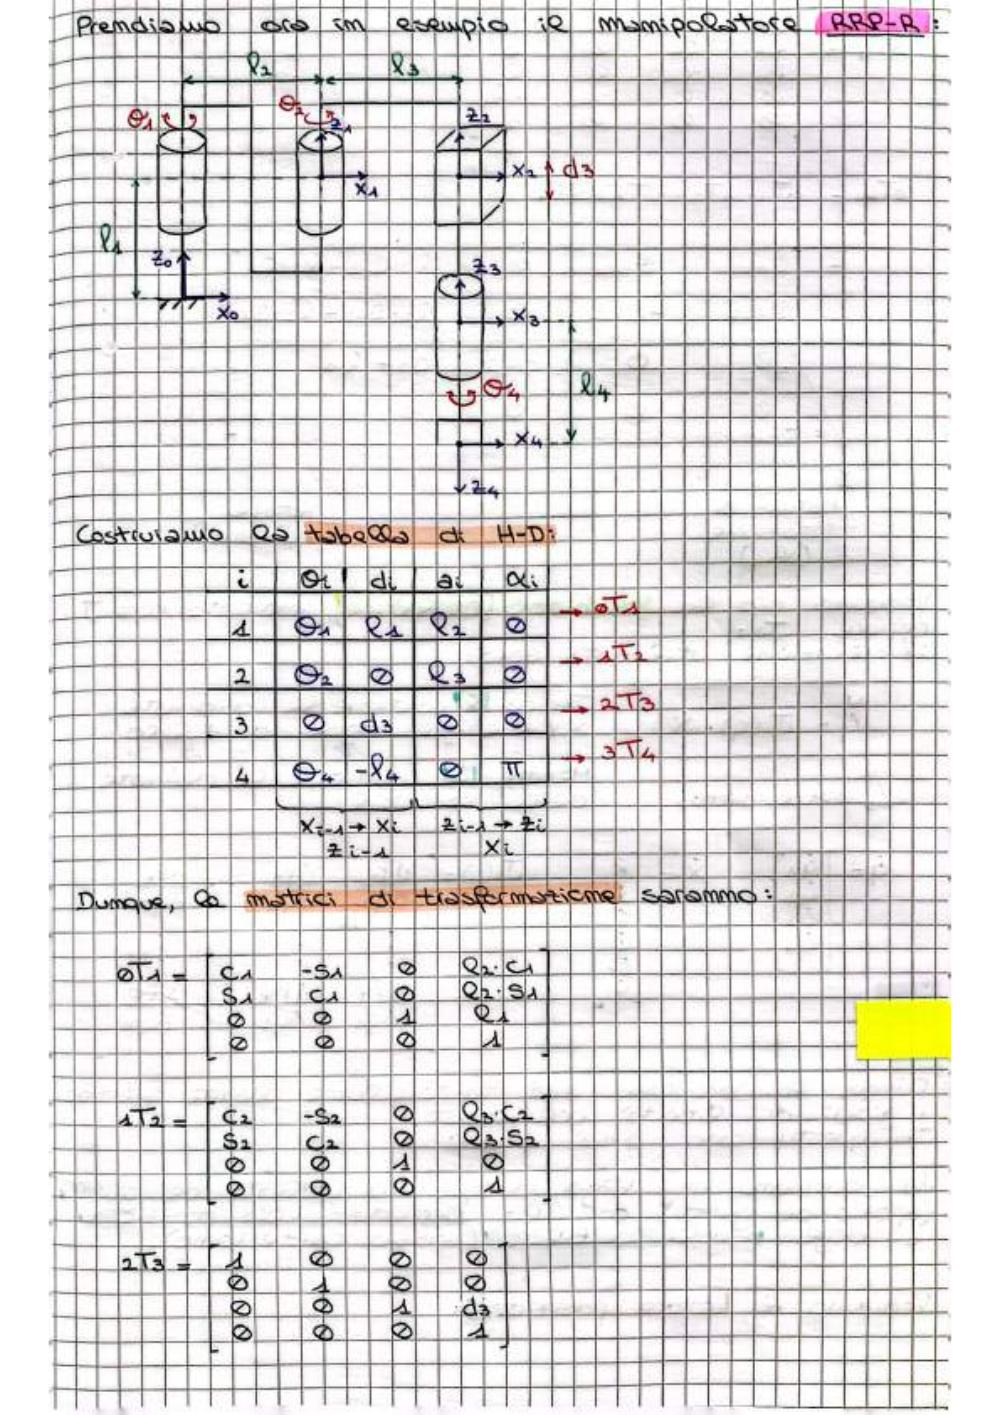 Prendiamo ora in esempio il manipolatore RRP-R:
l2 l3
θ1 θ2 z1 z2
x1 x2 d3
l1 z0 x0
z3
x3
θ4 l4
x4
z4
Costruiamo la tabella di H-D:
i θi di ai αi
1 θ1 l1 l2 0 → 0T1
2 θ2 0 l3 0 → 1T2
3 0 d3 0 0 → 2T3
4 θ4 -l4 0 π → 3T4
xi-1 → xi zi-1 → zi
zi-1 xi
Dunque, le matrici di trasformazione saranno:
0T1 = [ C1 -S1 0 l2·C1
S1 C1 0 l2·S1
0 0 1 l1
0 0 0 1 ]
1T2 = [ C2 -S2 0 l3·C2
S2 C2 0 l3·S2
0 0 1 0
0 0 0 1 ]
2T3 = [ 1 0 0 0
0 1 0 0
0 0 1 d3
0 0 0 1 ]